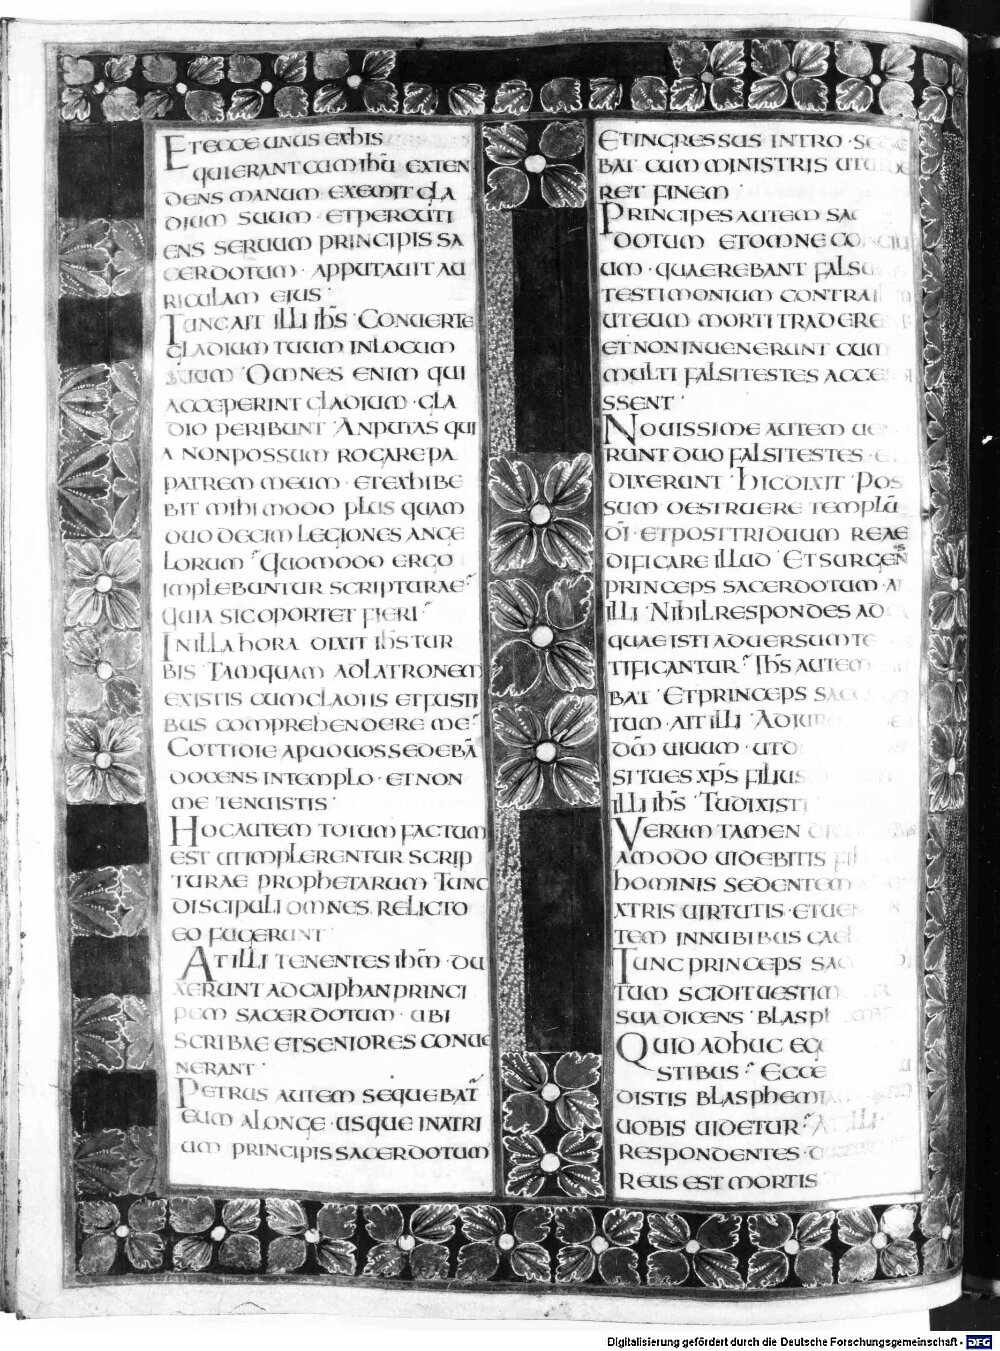 ET ECCE UNUS EXHIS
QUIERANT CUM IHŪ EXTEN
DENS MANUM EXEMIT GLA
DIUM SUUM · ET PERCUTI
ENS SERUUM PRINCIPIS SA
CERDOTUM · APPUTAUIT AU
RICULAM EIUS ·
TUNC AIT ILLI IHS · CONUERTE
GLADIUM TUUM IN LOCUM
SUUM · OMNES ENIM QUI
ACCEPERINT GLADIUM · GLA
DIO PERIBUNT · AN PUTAS QUI
A NON POSSUM ROGARE PA
PATREM MEUM · ET EXHIBE
BIT MIHI MODO PLUS QUAM
DUODECIM LEGIONES ANGE
LORUM · QUOMODO ERGO
IMPLEBUNTUR SCRIPTURAE ·
QUIA SIC OPORTET FIERI ·
IN ILLA HORA DIXIT IHS TUR
BIS · TAMQUAM AD LATRONEM
EXISTIS CUM GLADIIS ET FUSTI
BUS COMPREHENDERE ME ·
COTTIDIE APUD UOS SEDEBĀ
DOCENS IN TEMPLO · ET NON
ME TENUISTIS ·
HOC AUTEM TOTUM FACTUM
EST UT IMPLERENTUR SCRIP
TURAE PROPHETARUM TUNC
DISCIPULI OMNES RELICTO
EO FUGERUNT ·
AT ILLI TENENTES IHM̄ · DU
XERUNT AD CAIPHAN PRINCI
PEM SACERDOTUM · UBI
SCRIBAE ET SENIORES CONUE
NERANT ·
PETRUS AUTEM SEQUEBAT̄
EUM A LONGE · USQUE IN ATRI
UM PRINCIPIS SACERDOTUM
ET INGRESSUS INTRO · SEDE
BAT CUM MINISTRIS UT UIDE
RET FINEM ·
PRINCIPES AUTEM SA
DOTUM ET OMNE CONCILI
UM · QUAEREBANT FALSU
TESTIMONIUM CONTRA
UT EUM MORTI TRADERE
ET NON INUENERUNT CUM
MULTI FALSI TESTES ACCE
SSENT ·
NOUISSIME AUTEM UE
RUNT DUO FALSI TESTES ·
DIXERUNT · HIC DIXIT · POS
SUM DESTRUERE TEMPLŪ
DĪ · ET POST TRIDUUM REAE
DIFICARE ILLUD · ET SURGENS
PRINCEPS SACERDOTUM ·
ILLI · NIHIL RESPONDES AD
QUAE ISTI ADUERSUM TE
TIFICANTUR · IHS AUTEM
BAT · ET PRINCEPS SAC
TUM · AIT ILLI · ADIURO
DM̄ UIUUM · UT D
SI TU ES XPS FILIUS
ILLI IHS · TU DIXISTI
VERUM TAMEN
AMODO UIDEBITIS FI
HOMINIS SEDENTEM
XTRIS UIRTUTIS · ET UE
TEM IN NUBIBUS CAE
TUNC PRINCEPS SAC
TUM SCIDIT UESTIM
SUA DICENS · BLASPH
QUID ADHUC EG
STIBUS · ECCE
DISTIS BLASPHEMI
UOBIS UIDETUR · AT ILLI ·
RESPONDENTES ·
REUS EST MORTIS
Digitalisierung gefördert durch die Deutsche Forschungsgemeinschaft - DFG